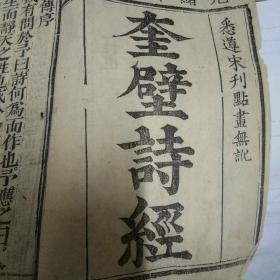 悉遵宋刊點畫無訛
奎壁詩經
傳序
有問於予曰詩何爲而作也予應之曰
生而靜天之性也感